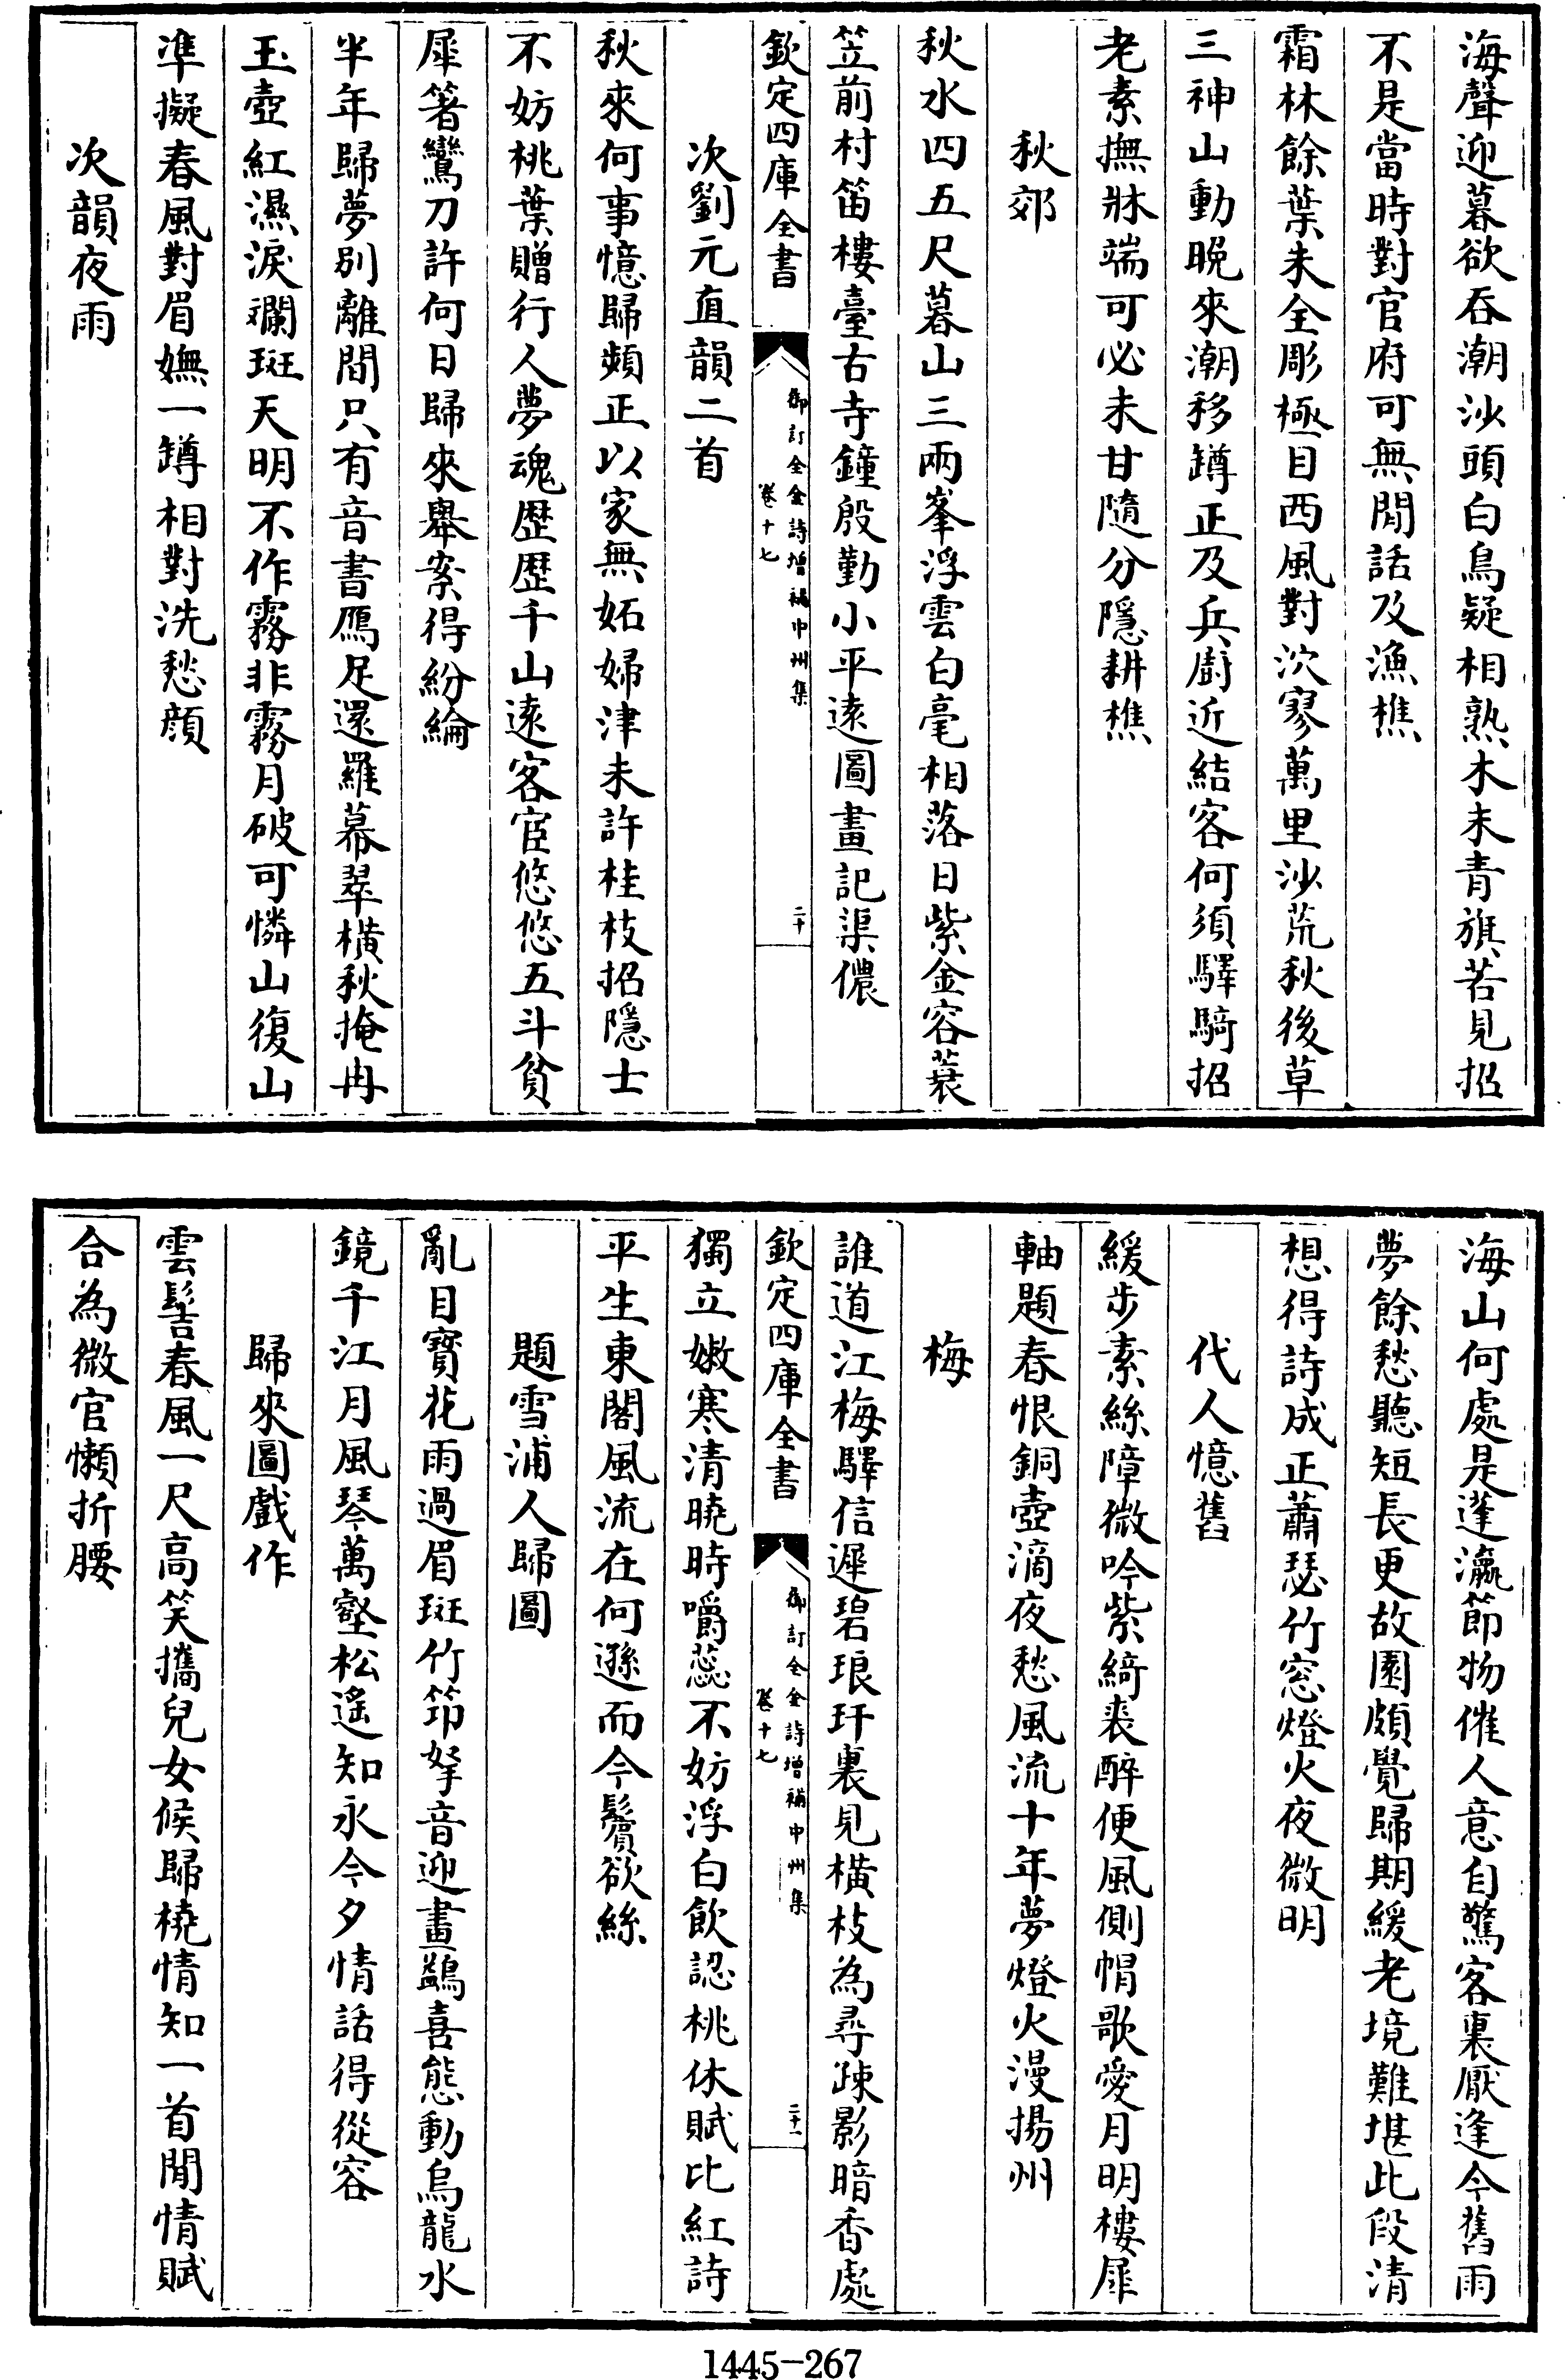 海聲迎暮欲吞潮沙頭白鳥疑相熟木末青旗若見招
不是當時對官府可無閒話及漁樵
霜林餘葉未全彫極目西風對泬寥萬里沙荒秋後草
三神山動晚來潮移罇正及兵廚近結客何須驛騎招
老素撫牀端可必未甘隨分隱耕樵
秋郊
秋水四五尺暮山三兩峯浮雲白毫相落日紫金容蓑
笠前村笛樓臺古寺鐘殷勤小平遠圖畫記渠儂
欽定四庫全書
御訂全金詩增補中州集
卷十七
二十
次劉元直韻二首
秋來何事憶歸頻正以家無妬婦津未許桂枝招隱士
不妨桃葉贈行人夢魂歷歷千山遠客宦悠悠五斗貧
犀箸鸞刀許何日歸來舉案得紛綸
半年歸夢別離間只有音書鴈足還羅幕翠橫秋掩冉
玉壺紅濕淚斕斑天明不作霧非霧月破可憐山復山
準擬春風對眉嫵一罇相對洗愁顔
次韻夜雨
海山何處是蓬瀛節物催人意自驚客裏厭逢今舊雨
夢餘愁聽短長更故園頗覺歸期緩老境難堪此段清
想得詩成正蕭瑟竹窓燈火夜微明
代人憶舊
緩步素絲障微吟紫綺裘醉便風側帽歌愛月明樓犀
軸題春恨銅壺滴夜愁風流十年夢燈火漫揚州
梅
誰道江梅驛信遲碧琅玕裏見橫枝為尋疎影暗香處
欽定四庫全書
御訂全金詩增補中州集
卷十七
二十一
獨立嫩寒清曉時嚼蕊不妨浮白飲認桃休賦比紅詩
平生東閣風流在何遜而今鬢欲絲
題雪浦人歸圖
亂目寶花雨過眉斑竹笻拏音迎畫鷁喜態動烏龍水
鏡千江月風琴萬壑松遙知永今夕情話得從容
歸來圖戲作
雲髻春風一尺高笑攜兒女候歸橈情知一首閒情賦
合為微官懶折腰
1445-267